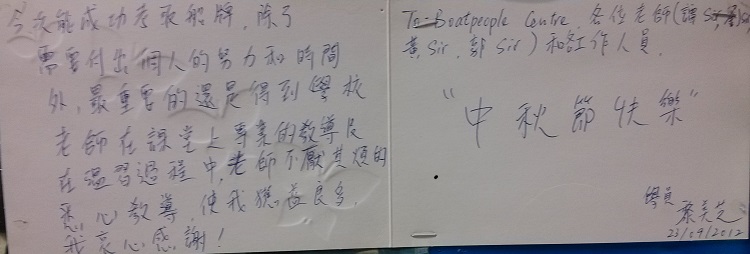 今次能成功考取船牌，除了
需要付出個人的努力和時間
外，最重要的還是得到學校
老師在課堂上專業的教導及
在溫習過程中，老師不厭其煩的
悉心教導，使我獲益良多，
我衷心感謝！
To: Boatpeople Centre, 各位老師(譚 Sir,
黃 Sir, 郭 Sir) 和各工作人員,
"中秋節快樂"
學員
葉美芝
23/09/2012